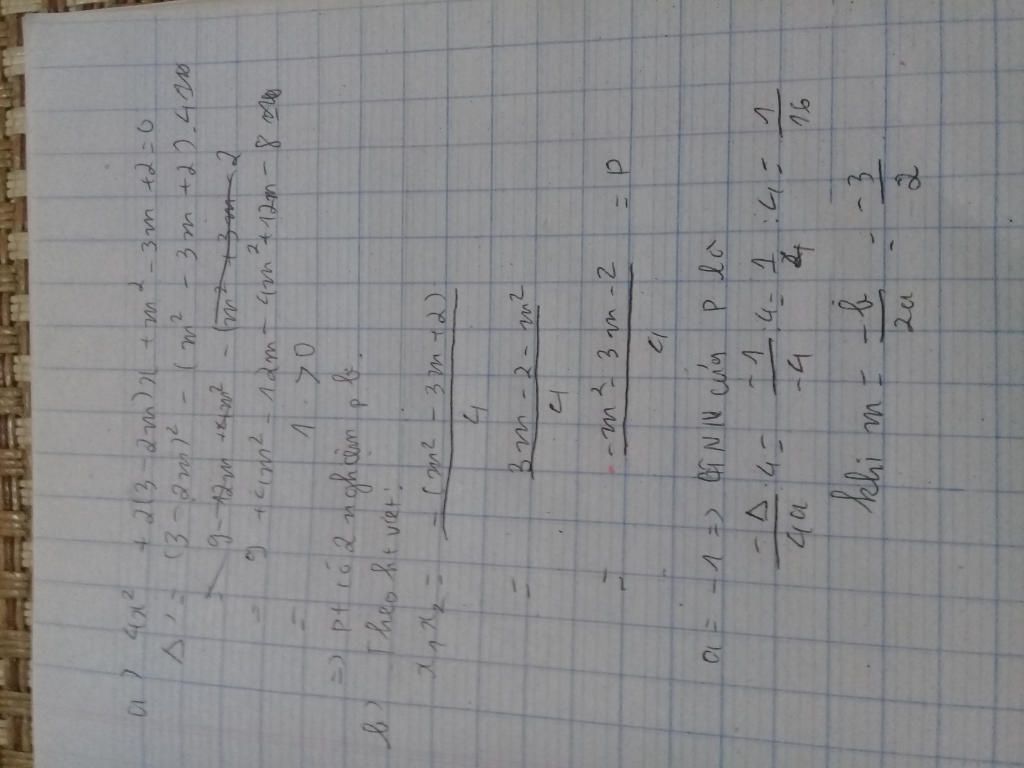 a) 4x² + 2(3 - 2m)x + m² - 3m + 2 = 0
Δ' = (3 - 2m)² - (m² - 3m + 2).4
= 9 - 12m + 4m² - (m² + 3m - 2
= 9 + 4m² - 12m - 4m² + 12m - 8
= 1 > 0
=> pt có 2 nghiệm p b.
b) Theo ht viet:
x₁x₂ = -(m² - 3m + 2) / 4
= 3m - 2 - m² / 4
= -m² - 3m - 2 / 4 = P
a = -1 => GTNN của P là
-Δ / 4a . 4 = -1 / -4 . 4 = 1 / 4 : 4 = 1 / 16
khi m = -b / 2a = -3 / 2